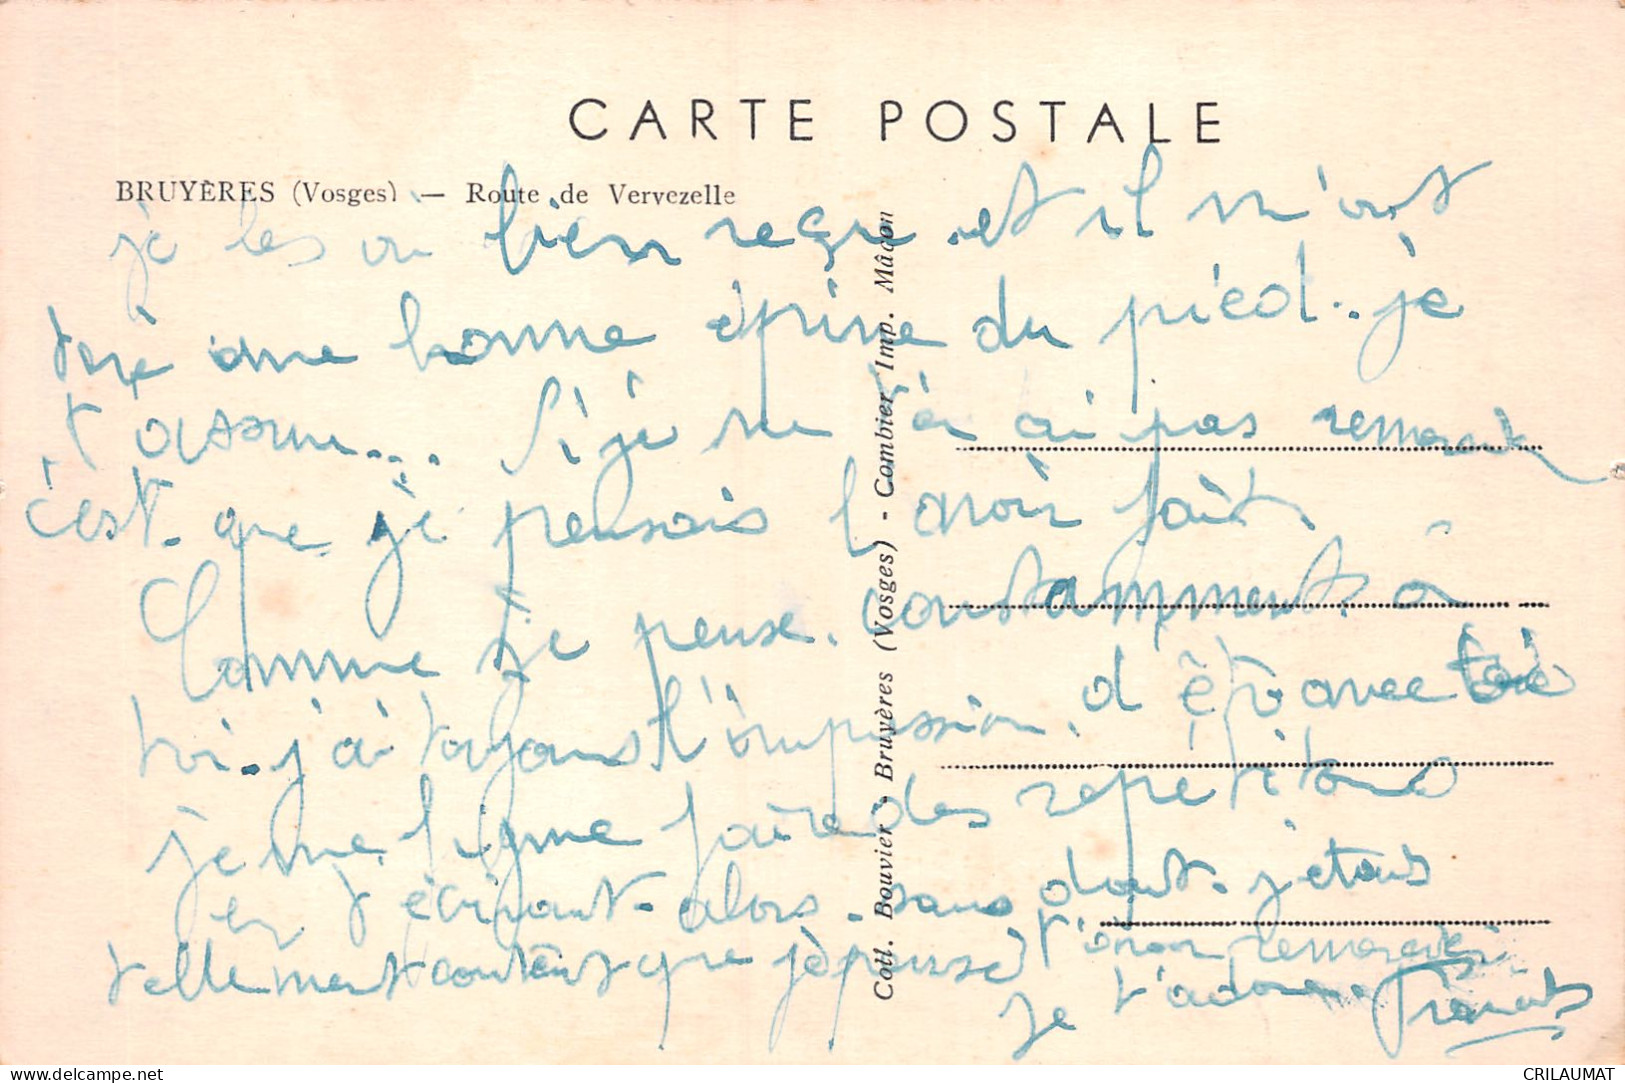 CARTE POSTALE
BRUYÈRES (Vosges) — Route de Vervezelle
je les ai bien reçu. et il m'ont
tiré une bonne épine du pied.. je
t'assure... Si je ne t'en ai pas remercié
c'est que je pensais l'avoir fait.
Comme je pense constamment à
toi. j'ai toujours l'impression. d'être avec toi
je me figure faire des répétitions
en t'écrivant. alors. sans doute. j'étais
tellement content que je pensé t'avoir remercier.
je t'adore.
Coll. Bouvier - Bruyères (Vosges) - Combier Imp. Mâcon
CRILAUMAT